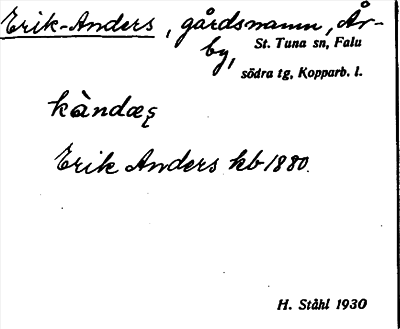 Erik-Anders, gårdsnamn, År-
by,
St. Tuna sn, Falu
södra tg, Kopparb. l.
Erik Anders kb 1880.
H. Ståhl 1930